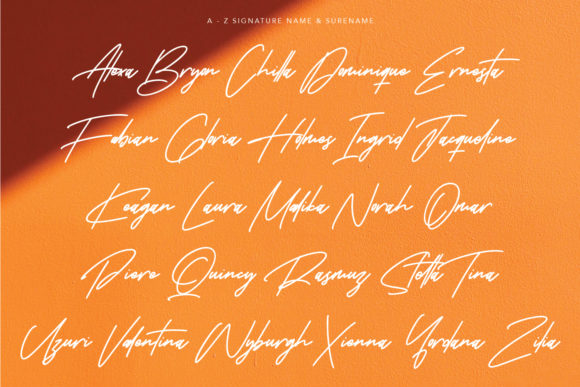 A - Z SIGNATURE NAME & SURENAME
Alexa Bryan Chilla Dominique Ernesta
Fabian Gloria Holmes Ingrid Jacqueline
Keagan Laura Malika Norah Omar
Piero Quincy Rasmuz Stella Tina
Uzuri Valentina Wyburgh Xienna Yordana Zilia